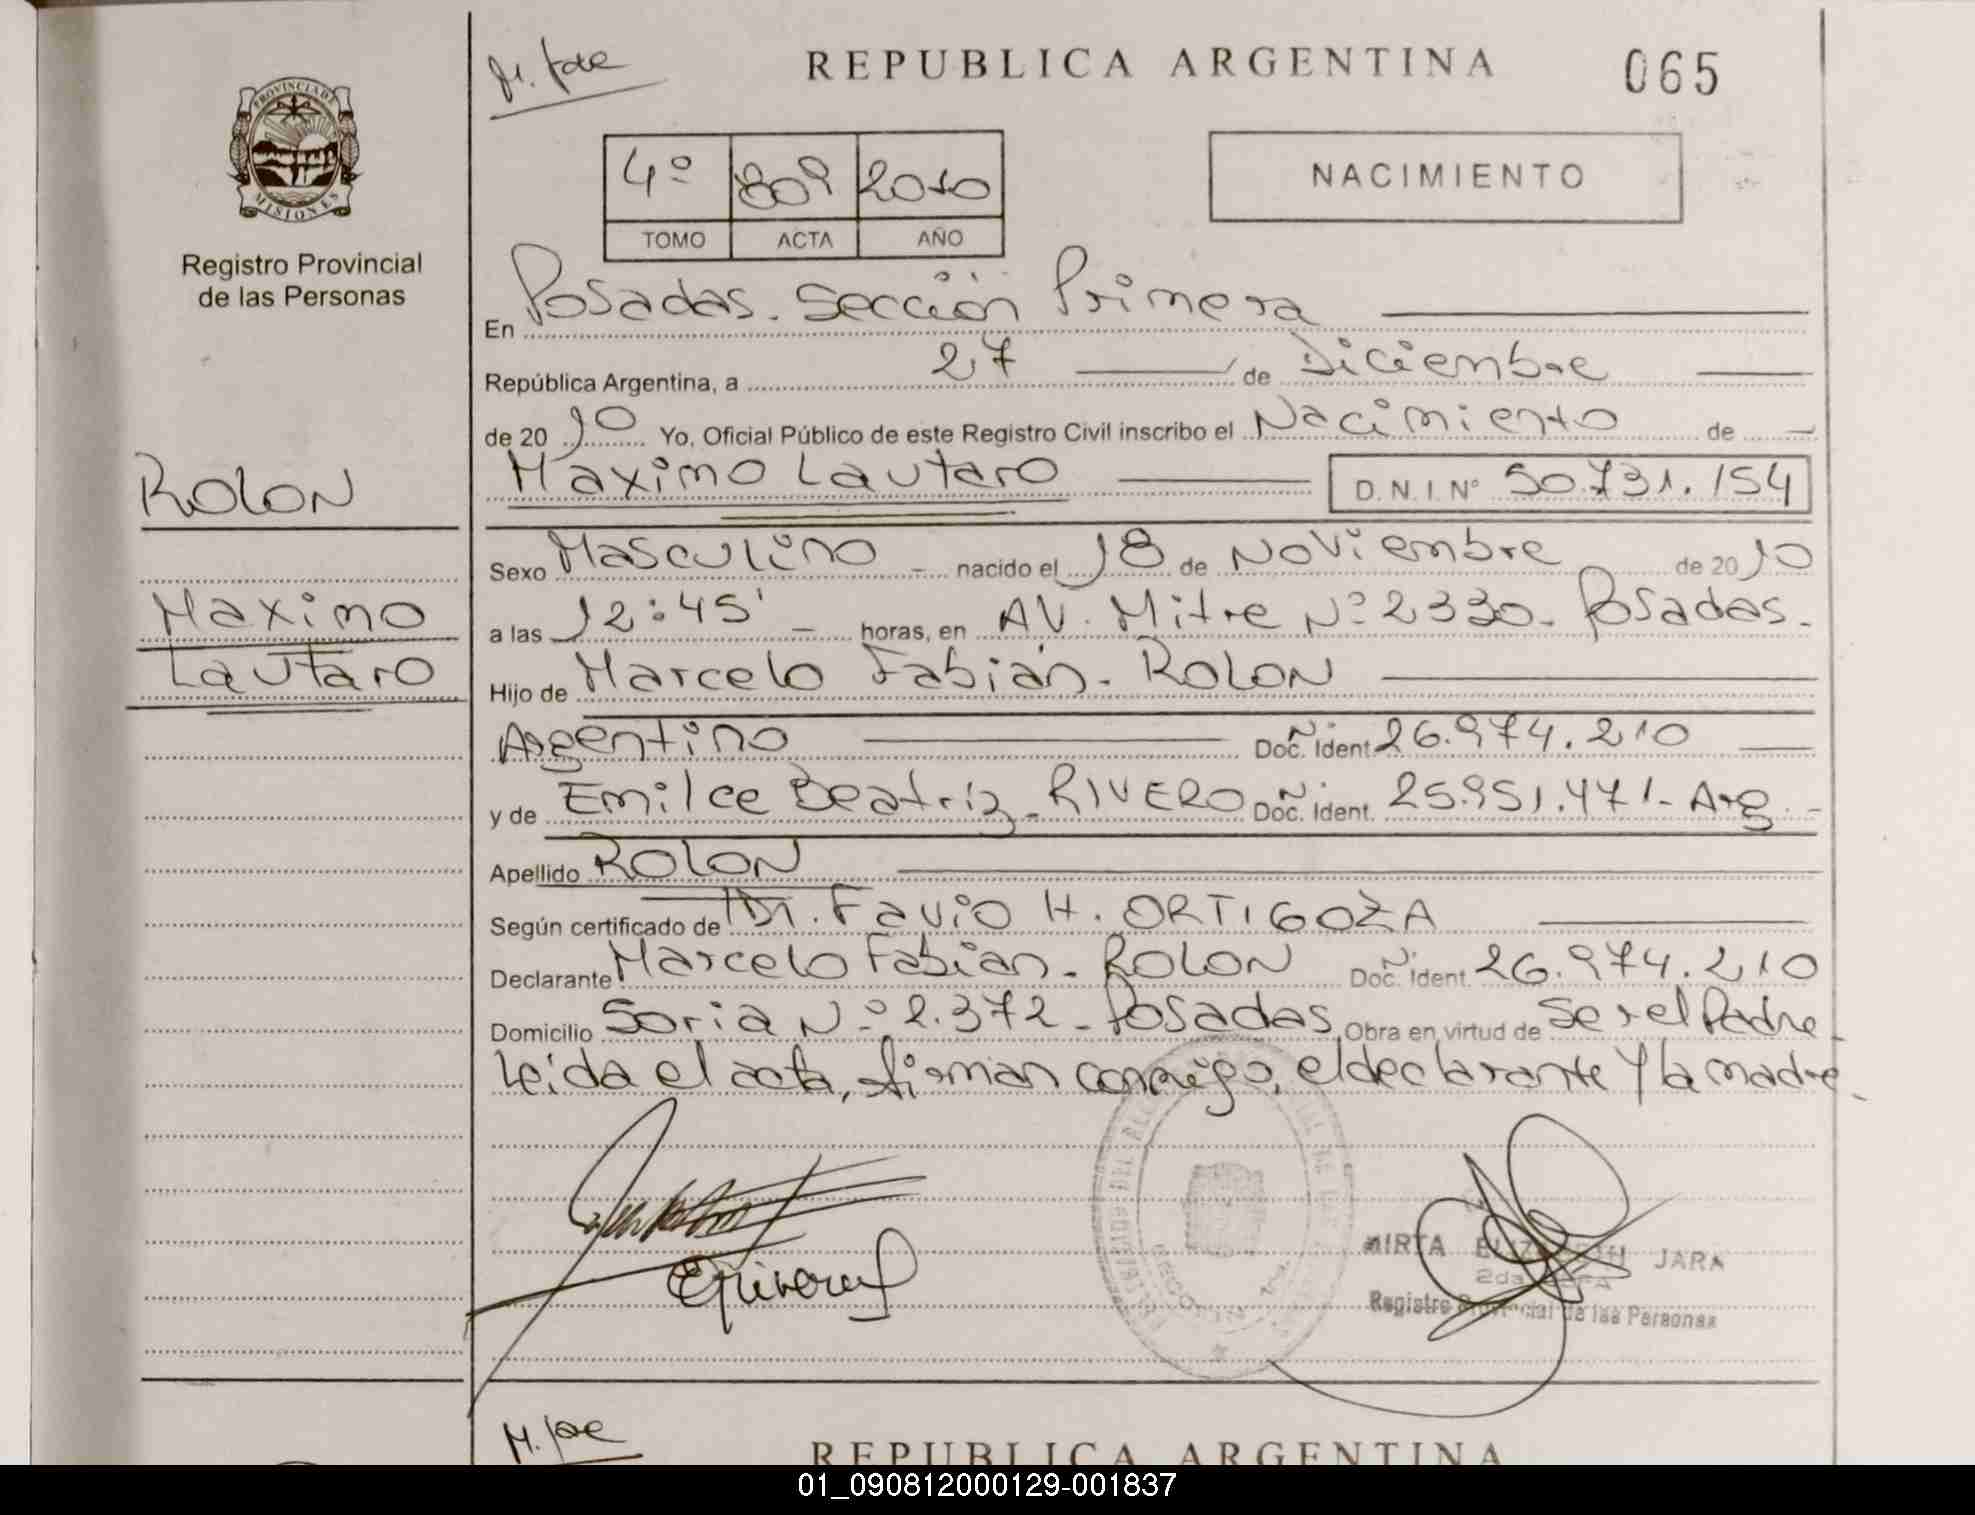 M. Jose
REPUBLICA ARGENTINA
065
PROVINCIA DE
MISIONES
4º 809 2010
TOMO ACTA AÑO
NACIMIENTO
Registro Provincial
de las Personas
En Posadas. Sección Primera
República Argentina, a 27 de Diciembre
de 20 10 Yo, Oficial Público de este Registro Civil inscribo el Nacimiento de
Maximo Lautaro D.N.I. Nº 50.731.154
ROLON
Maximo
Lautaro
Sexo Masculino nacido el 18 de Noviembre de 20 10
a las 12:45' horas, en AV. Mitre Nº 2330. Posadas.
Hijo de Marcelo Fabián. ROLON
Argentino Doc. Ident 26.974.210
y de Emilce Beatriz. RIVERO Doc. Ident. 25.951.471- Arg.
Apellido ROLON
Según certificado de Dr. Favio H. ORTIGOZA
Declarante Marcelo Fabian. ROLON Doc. Ident. 26.974.210
Domicilio Soria Nº 2.372. Posadas. Obra en virtud de ser el Padre.
Leida el acta, firman conmigo, el declarante y la madre.
MIRTA ELIZABETH JARA
2da. JEFA
Registro Provincial de las Personas
REPUBLICA ARGENTINA
01_090812000129-001837